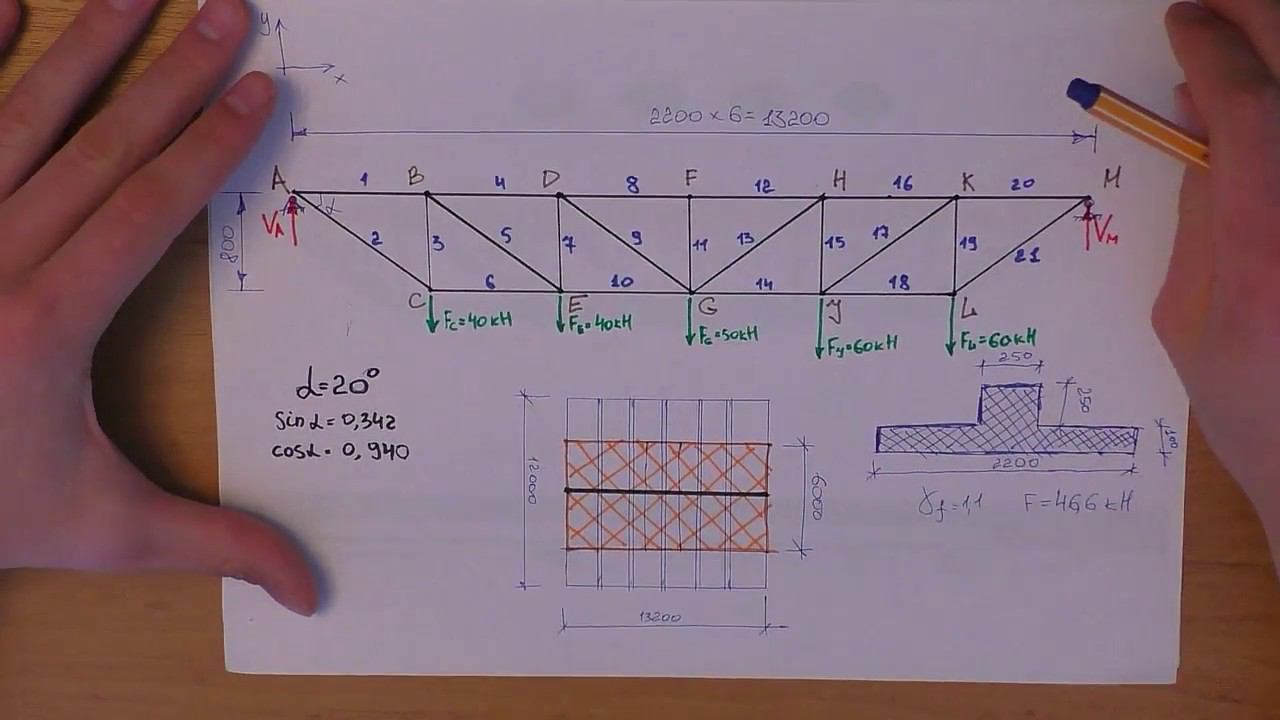 y
x
2200 × 6 = 13200
A 1 B 4 D 8 F 12 H 16 K 20 M
α
V_A
V_M
800
2 3 5 7 9 11 13 15 17 19 21
6 10 14 18
C E G У L
F_C=40кН
F_E=40кН
F_G=50кН
F_У=60кН
F_L=60кН
α=20°
sinα=0,342
cosα=0,940
250
250
100
2200
12000
6000
13200
γ_f=1,1 F=46,6 кН